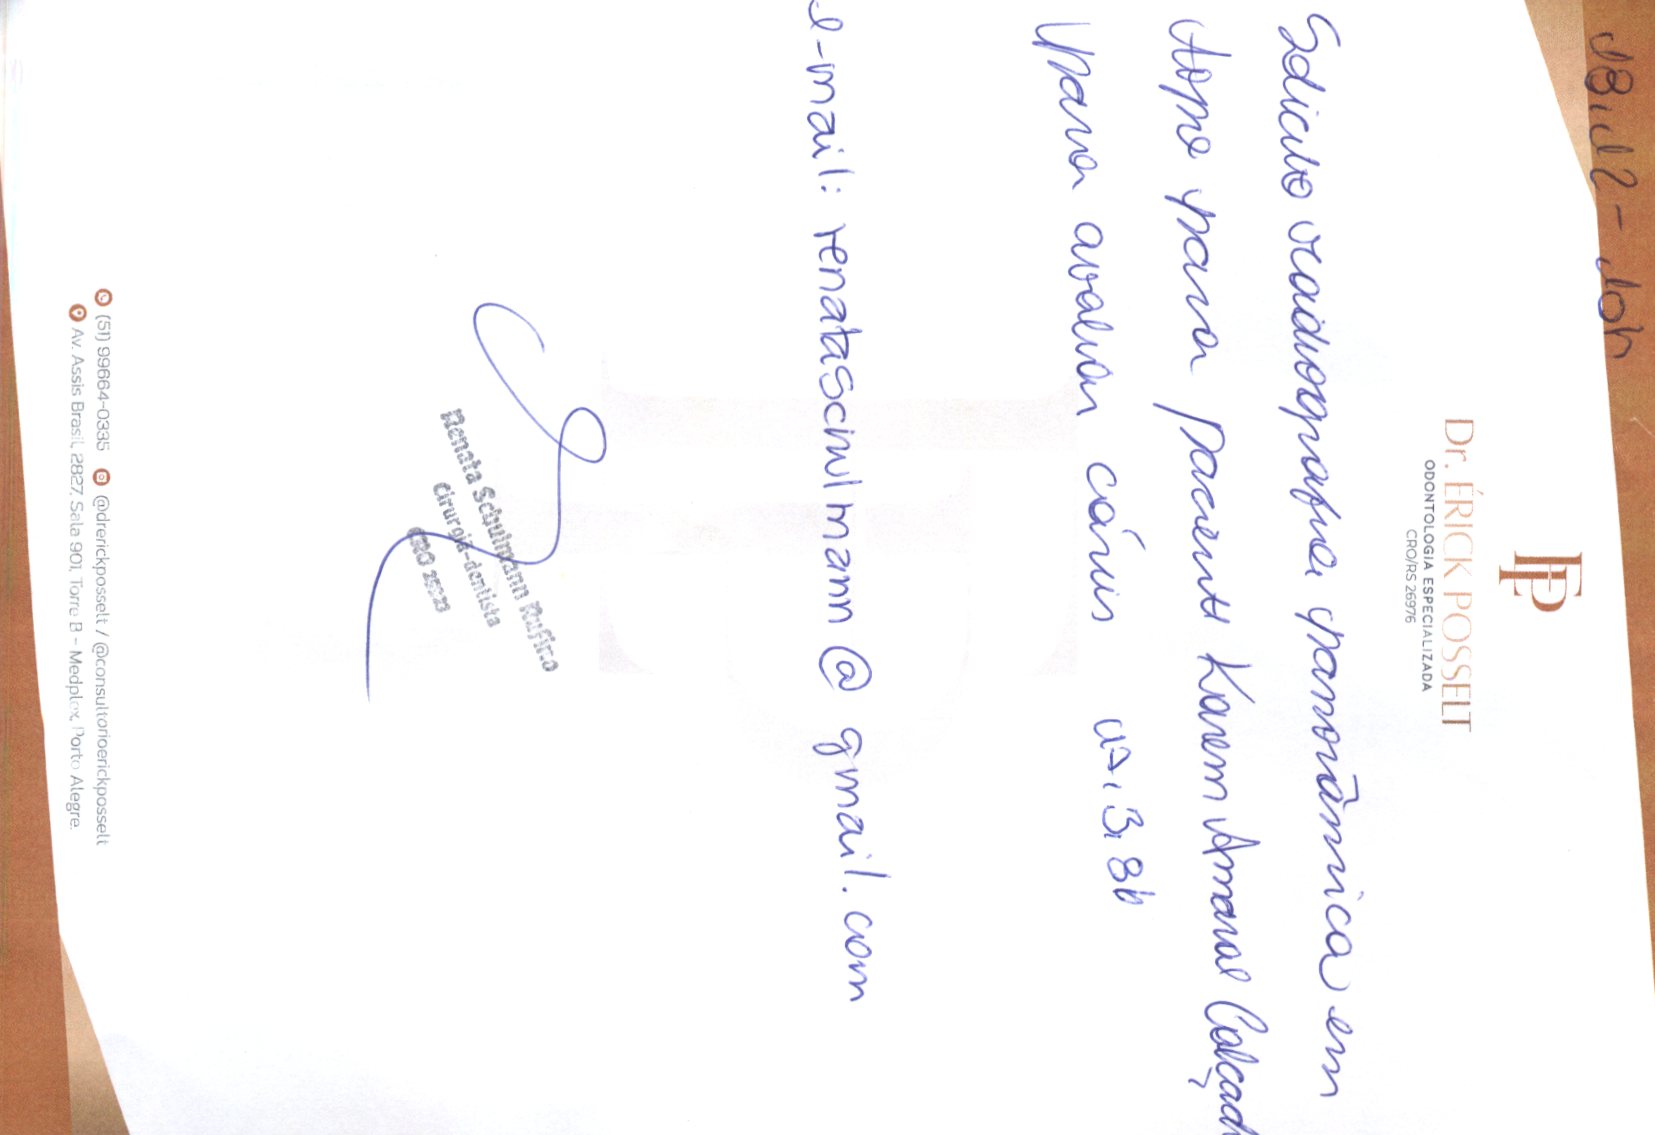 EP
Dr. ÉRICK POSSELT
ODONTOLOGIA ESPECIALIZADA
CRO/RS 26976
Solicito radiografia panorâmica em
topo para paciente Karem Amaral Calçad
para avaliar cáries
e-mail: renataschulmann@gmail.com
Renata Schulmann Ruffino
Cirurgiã-dentista
CRO
(51) 99664-0335 @drerickposselt / @consultorioerickposselt
Av. Assis Brasil, 2827, Sala 901, Torre B - Medplex, Porto Alegre.